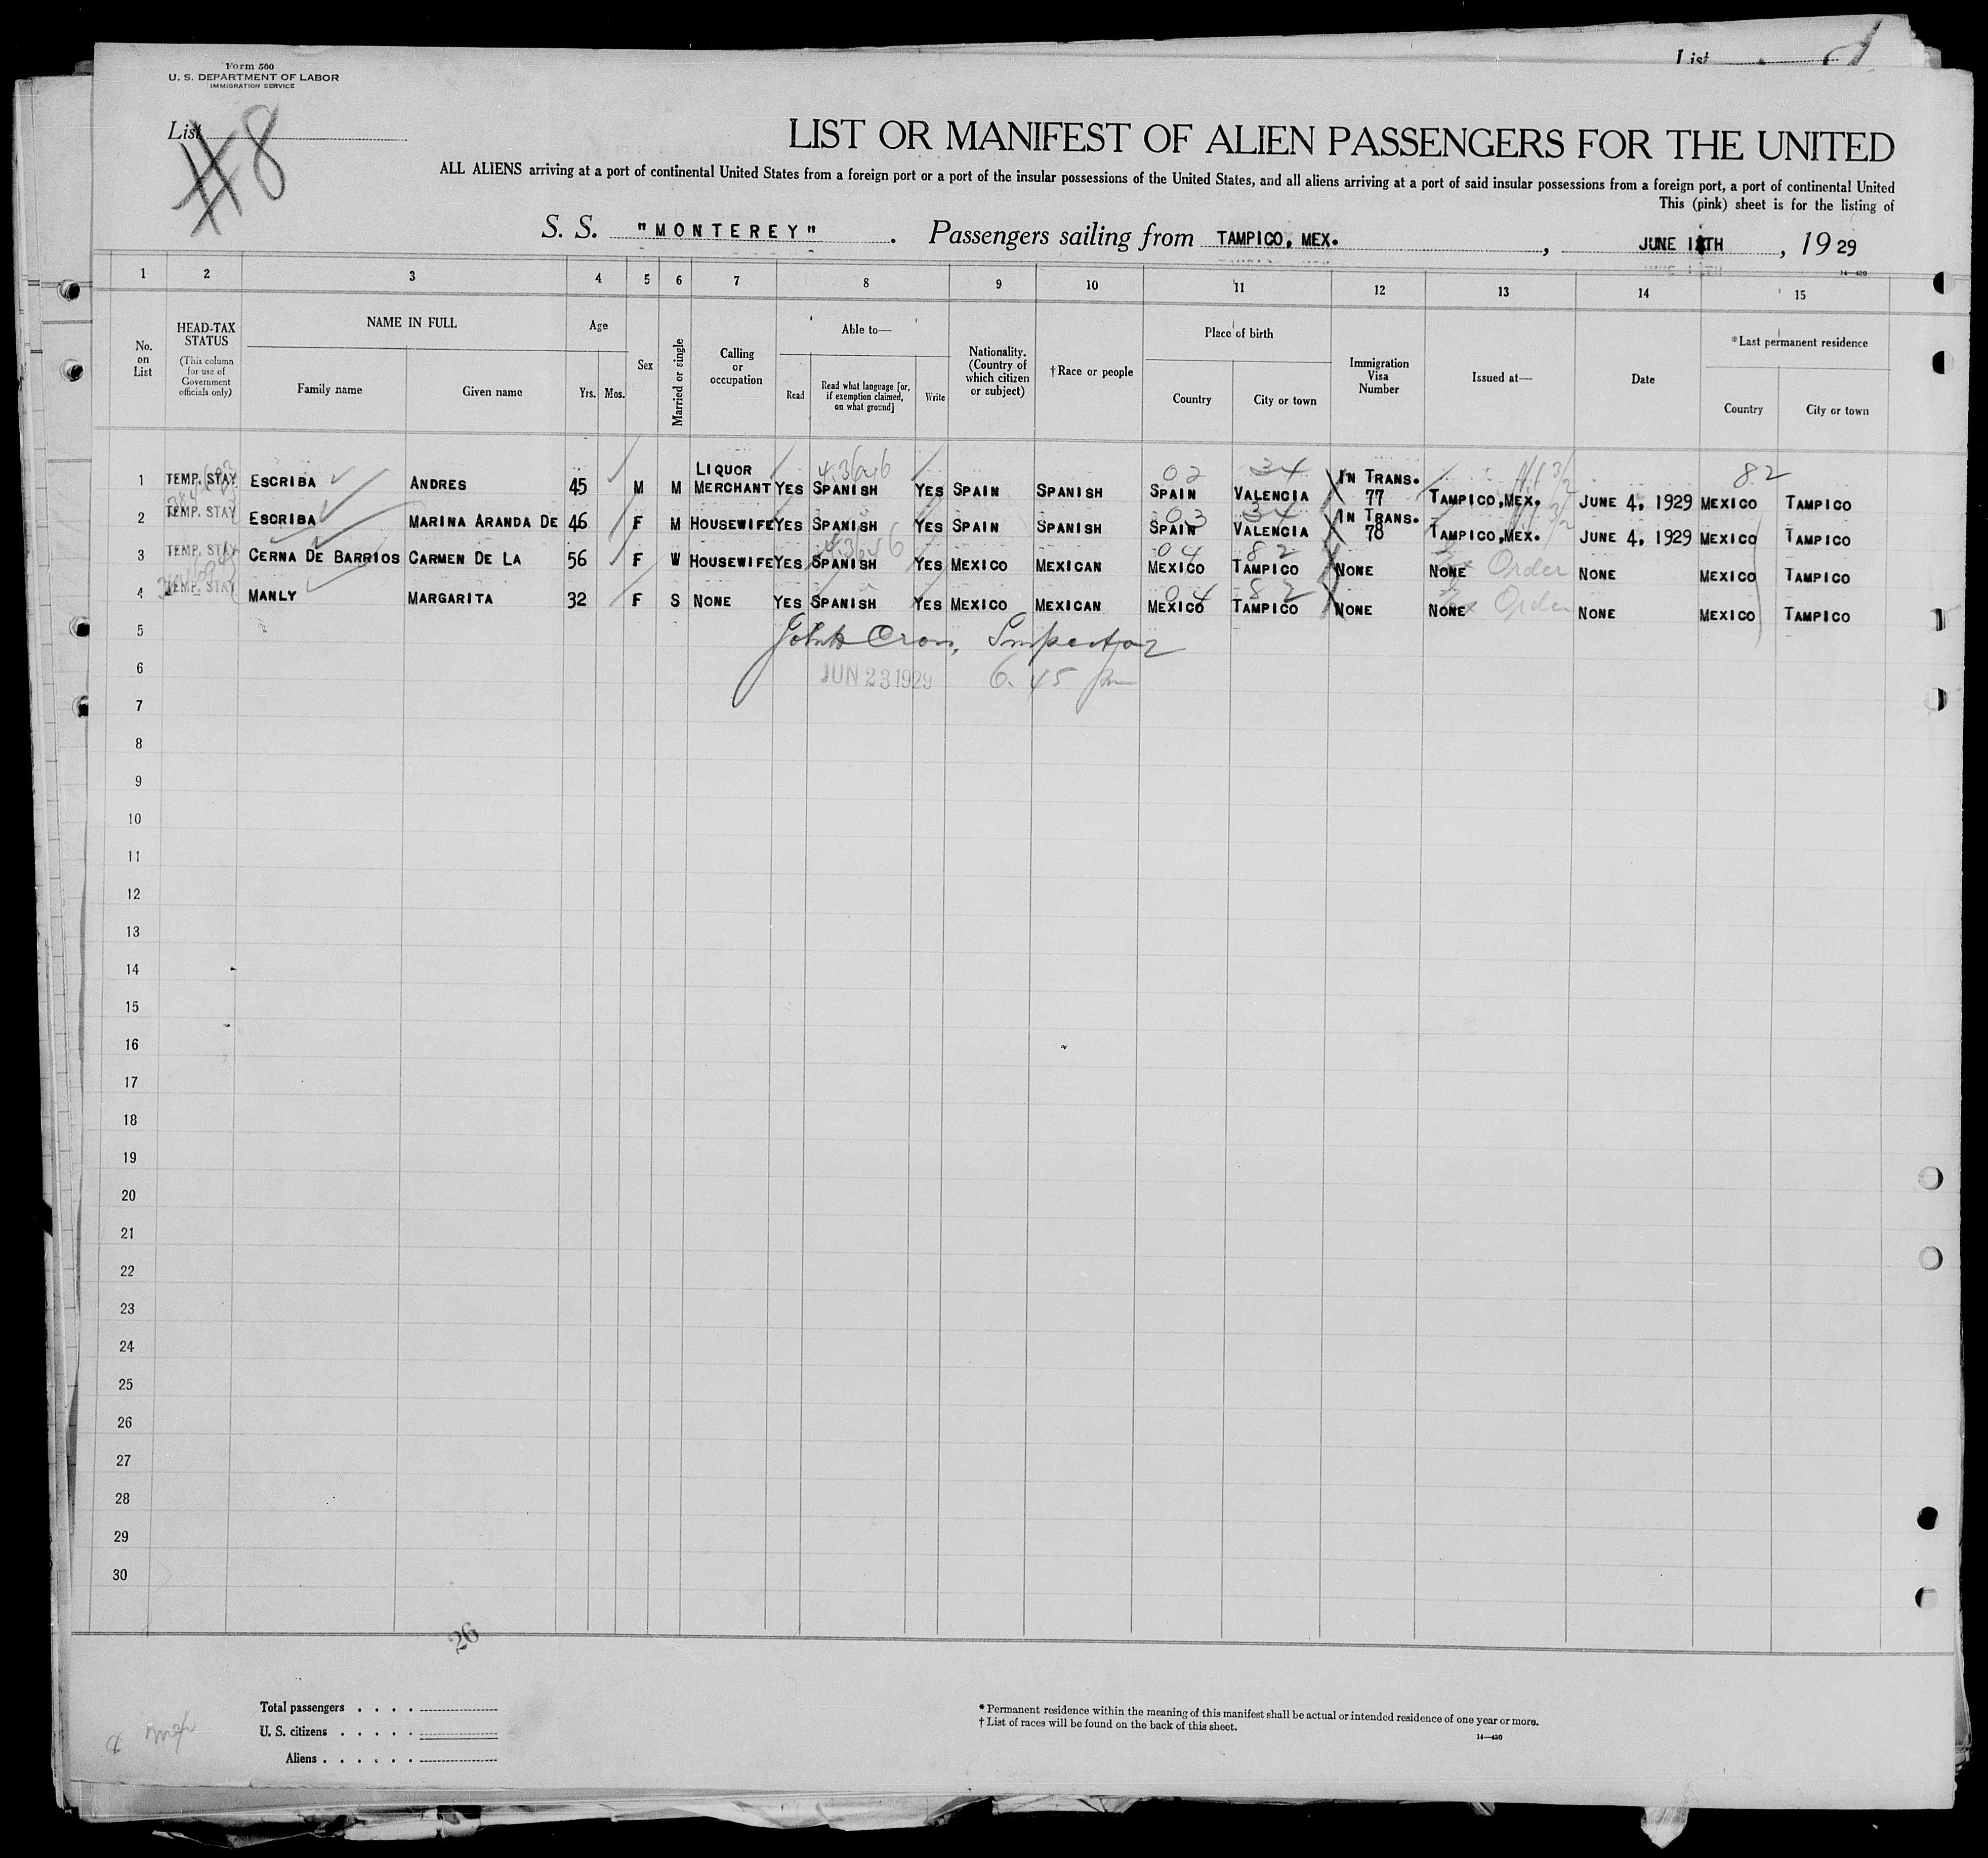 List
Form 500
U. S. DEPARTMENT OF LABOR
IMMIGRATION SERVICE
List
#8
LIST OR MANIFEST OF ALIEN PASSENGERS FOR THE UNITED
ALL ALIENS arriving at a port of continental United States from a foreign port or a port of the insular possessions of the United States, and all aliens arriving at a port of said insular possessions from a foreign port, a port of continental United
This (pink) sheet is for the listing of
S. S. "MONTEREY". Passengers sailing from TAMPICO, MEX., JUNE TH, 1929
14—420
1 2 3 4 5 6 7 8 9 10 11 12 13 14 15
No. on List
HEAD-TAX STATUS
(This column for use of Government officials only)
NAME IN FULL
Family name
Given name
Age
Yrs. Mos.
Sex
Married or single
Calling or occupation
Able to—
Read
Read what language [or, if exemption claimed, on what ground]
Write
Nationality. (Country of which citizen or subject)
†Race or people
Place of birth
Country
City or town
Immigration Visa Number
Issued at—
Date
*Last permanent residence
Country
City or town
1 TEMP. STAY ESCRIBA ANDRES 45 M M LIQUOR MERCHANT YES SPANISH YES SPAIN SPANISH SPAIN VALENCIA IN TRANS. 77 TAMPICO, MEX. JUNE 4, 1929 MEXICO TAMPICO
02 34 82
2 TEMP. STAY ESCRIBA MARINA ARANDA DE 46 F M HOUSEWIFE YES SPANISH YES SPAIN SPANISH SPAIN VALENCIA IN TRANS. 78 TAMPICO, MEX. JUNE 4, 1929 MEXICO TAMPICO
03 34
3 TEMP. STAY CERNA DE BARRIOS CARMEN DE LA 56 F W HOUSEWIFE YES SPANISH YES MEXICO MEXICAN MEXICO TAMPICO NONE NONE Order NONE MEXICO TAMPICO
04 82
4 TEMP. STAY MANLY MARGARITA 32 F S NONE YES SPANISH YES MEXICO MEXICAN MEXICO TAMPICO NONE NONE Order NONE MEXICO TAMPICO
04 82
5 Inspector
6 JUN 23 1929 6.45 pm
7
8
9
10
11
12
13
14
15
16
17
18
19
20
21
22
23
24
25
26
27
28
29
30
26
Total passengers . . . .
U. S. citizens . . . . .
Aliens . . . . . .
* Permanent residence within the meaning of this manifest shall be actual or intended residence of one year or more.
† List of races will be found on the back of this sheet.
14—430